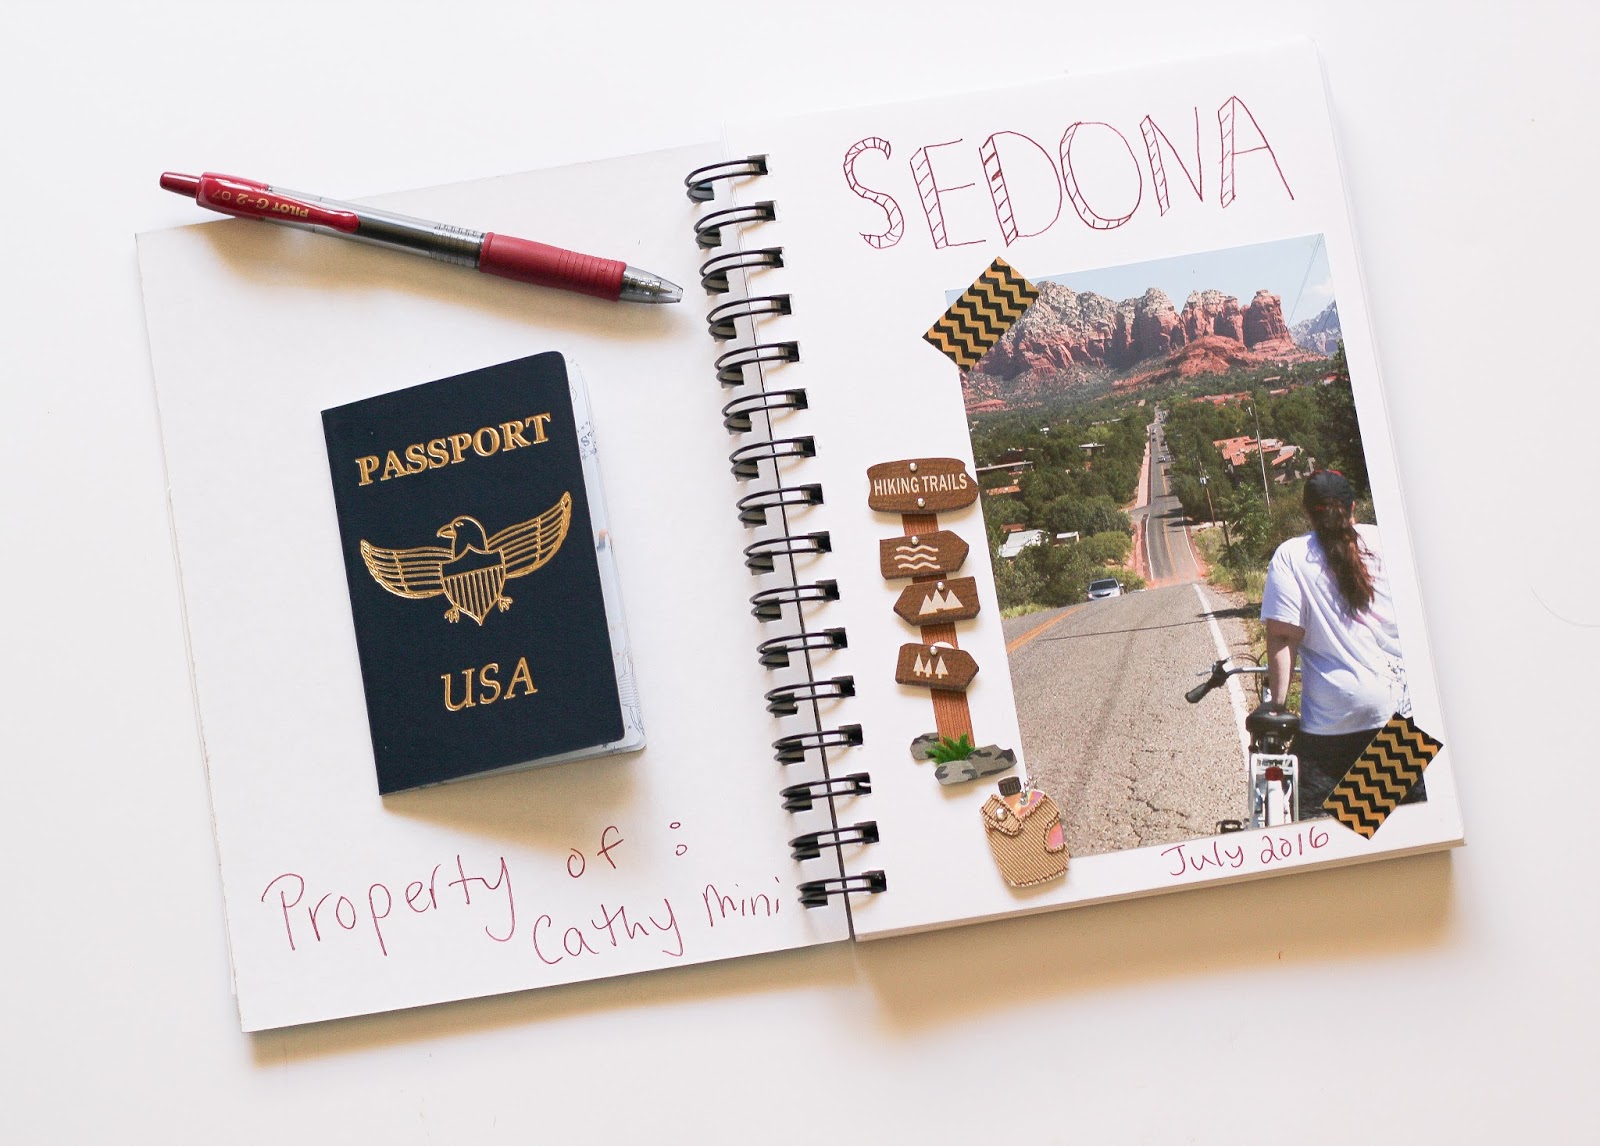 PILOT G-2 07
PASSPORT
USA
Property of :
Cathy Mini
SEDONA
HIKING TRAILS
July 2016